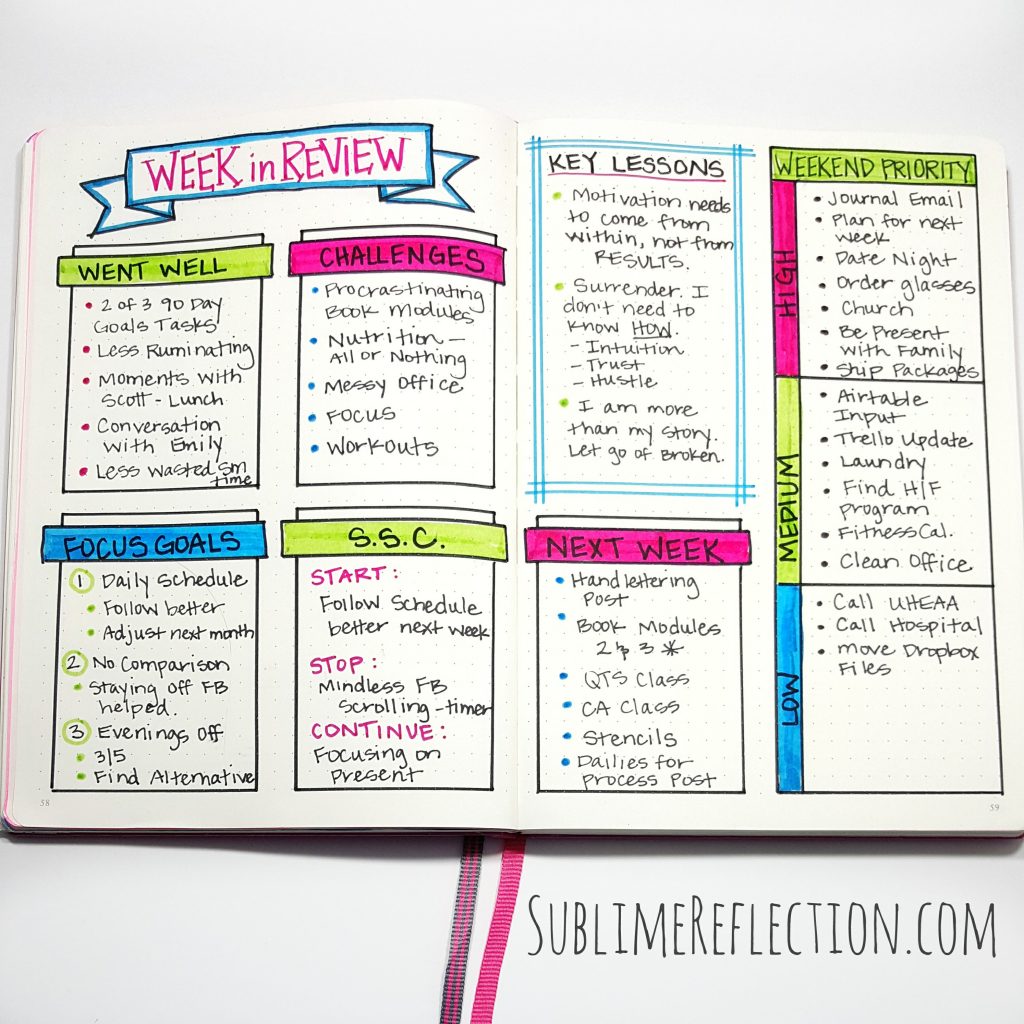 WEEK in REVIEW
WENT WELL
• 2 of 3 90 Day
Goals Tasks
• Less Ruminating
• Moments with
Scott - Lunch
• Conversation
with Emily
• Less Wasted Sm
time
CHALLENGES
• Procrastinating
Book Modules
• Nutrition –
All or Nothing
• Messy Office
• FOCUS
• WORKOUTS
FOCUS GOALS
1 Daily Schedule
• Follow better
• Adjust next month
2 No Comparison
• Staying off FB
helped.
3 Evenings Off
• 3/5
• Find Alternative
S.S.C.
START:
Follow Schedule
better next week
STOP:
Mindless FB
Scrolling - timer
CONTINUE:
Focusing on
Present
58
KEY LESSONS
• Motivation needs
to come from
within, not from
RESULTS.
• Surrender. I
don't need to
know HOW.
- Intuition
- Trust
- Hustle
• I am more
than my story.
Let go of Broken.
NEXT WEEK
• Handlettering
Post
• Book Modules
2 & 3 *
• QTS Class
• CA Class
• Stencils
• Dailies for
Process Post
WEEKEND PRIORITY
HIGH
• Journal Email
• Plan for next
week
• Date Night
• Order glasses
• Church
• Be Present
with Family
• Ship Packages
MEDIUM
• Airtable
Input
• Trello Update
• Laundry
• Find H/F
program
• Fitness Cal.
• Clean Office
LOW
• Call UHEAA
• Call Hospital
• move Dropbox
Files
59
SUBLIMEREFLECTION.COM